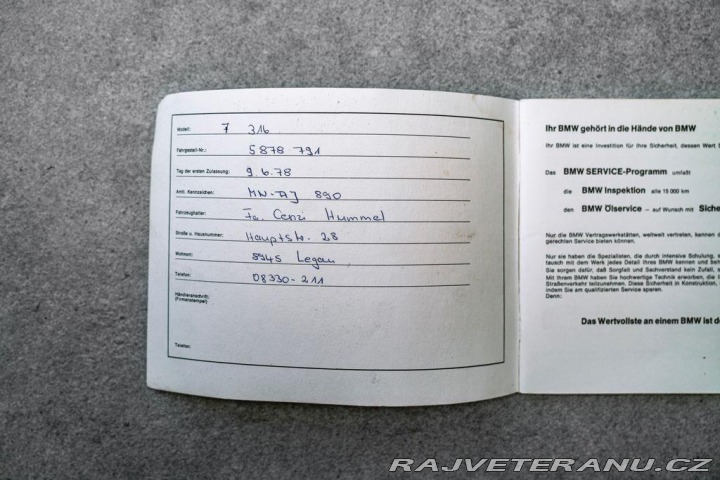 Modell: 7 316
Fahrgestell-Nr.: 5878 791
Tag der ersten Zulassung: 9.6.78
Amtl. Kennzeichen: MN-AJ 890
Fahrzeughalter: Fa. Cenzi Hummel
Straße u. Hausnummer: Hauptstr. 28
Wohnort: 8945 Legau
Telefon: 08330-211
Händleranschrift:
(Firmenstempel)
Telefon:
Ihr BMW gehört in die Hände von BMW
Ihr BMW ist eine Investition für Ihre Sicherheit, dessen Wert
Das BMW SERVICE-Programm umfaßt
die BMW Inspektion alle 15 000 km
den BMW Ölservice – auf Wunsch mit Siche
Nur die BMW Vertragswerkstätten, weltweit vertreten, kennen d
gerechten Service bieten können.
Nur sie haben die Spezialisten, die durch intensive Schulung, e
tausch mit dem Werk jedes Detail Ihres BMW kennen und beh
Sie sorgen dafür, daß Sorgfalt und Sachverstand kein Zufall,
Mit Ihrem BMW haben Sie hochwertige Technik erworben, die
Straßenverkehr teilzunehmen. Diese Sicherheit in Konstruktion,
indem Sie am qualifizierten Service sparen.
Denn:
Das Wertvollste an einem BMW ist de
RAJVETERANU.CZ